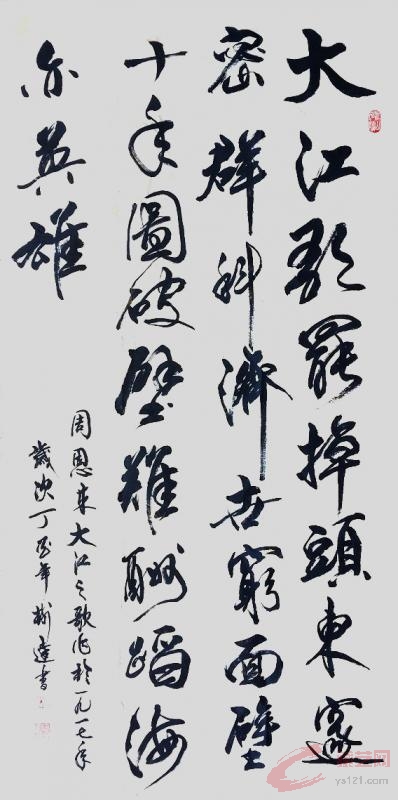 大江歌罷掉頭東邃
密群科濟世窮面壁
十年圖破壁難酬蹈海
亦英雄
周恩来大江之歌作於一九一七年
歲次丁酉年達書
ys121.com